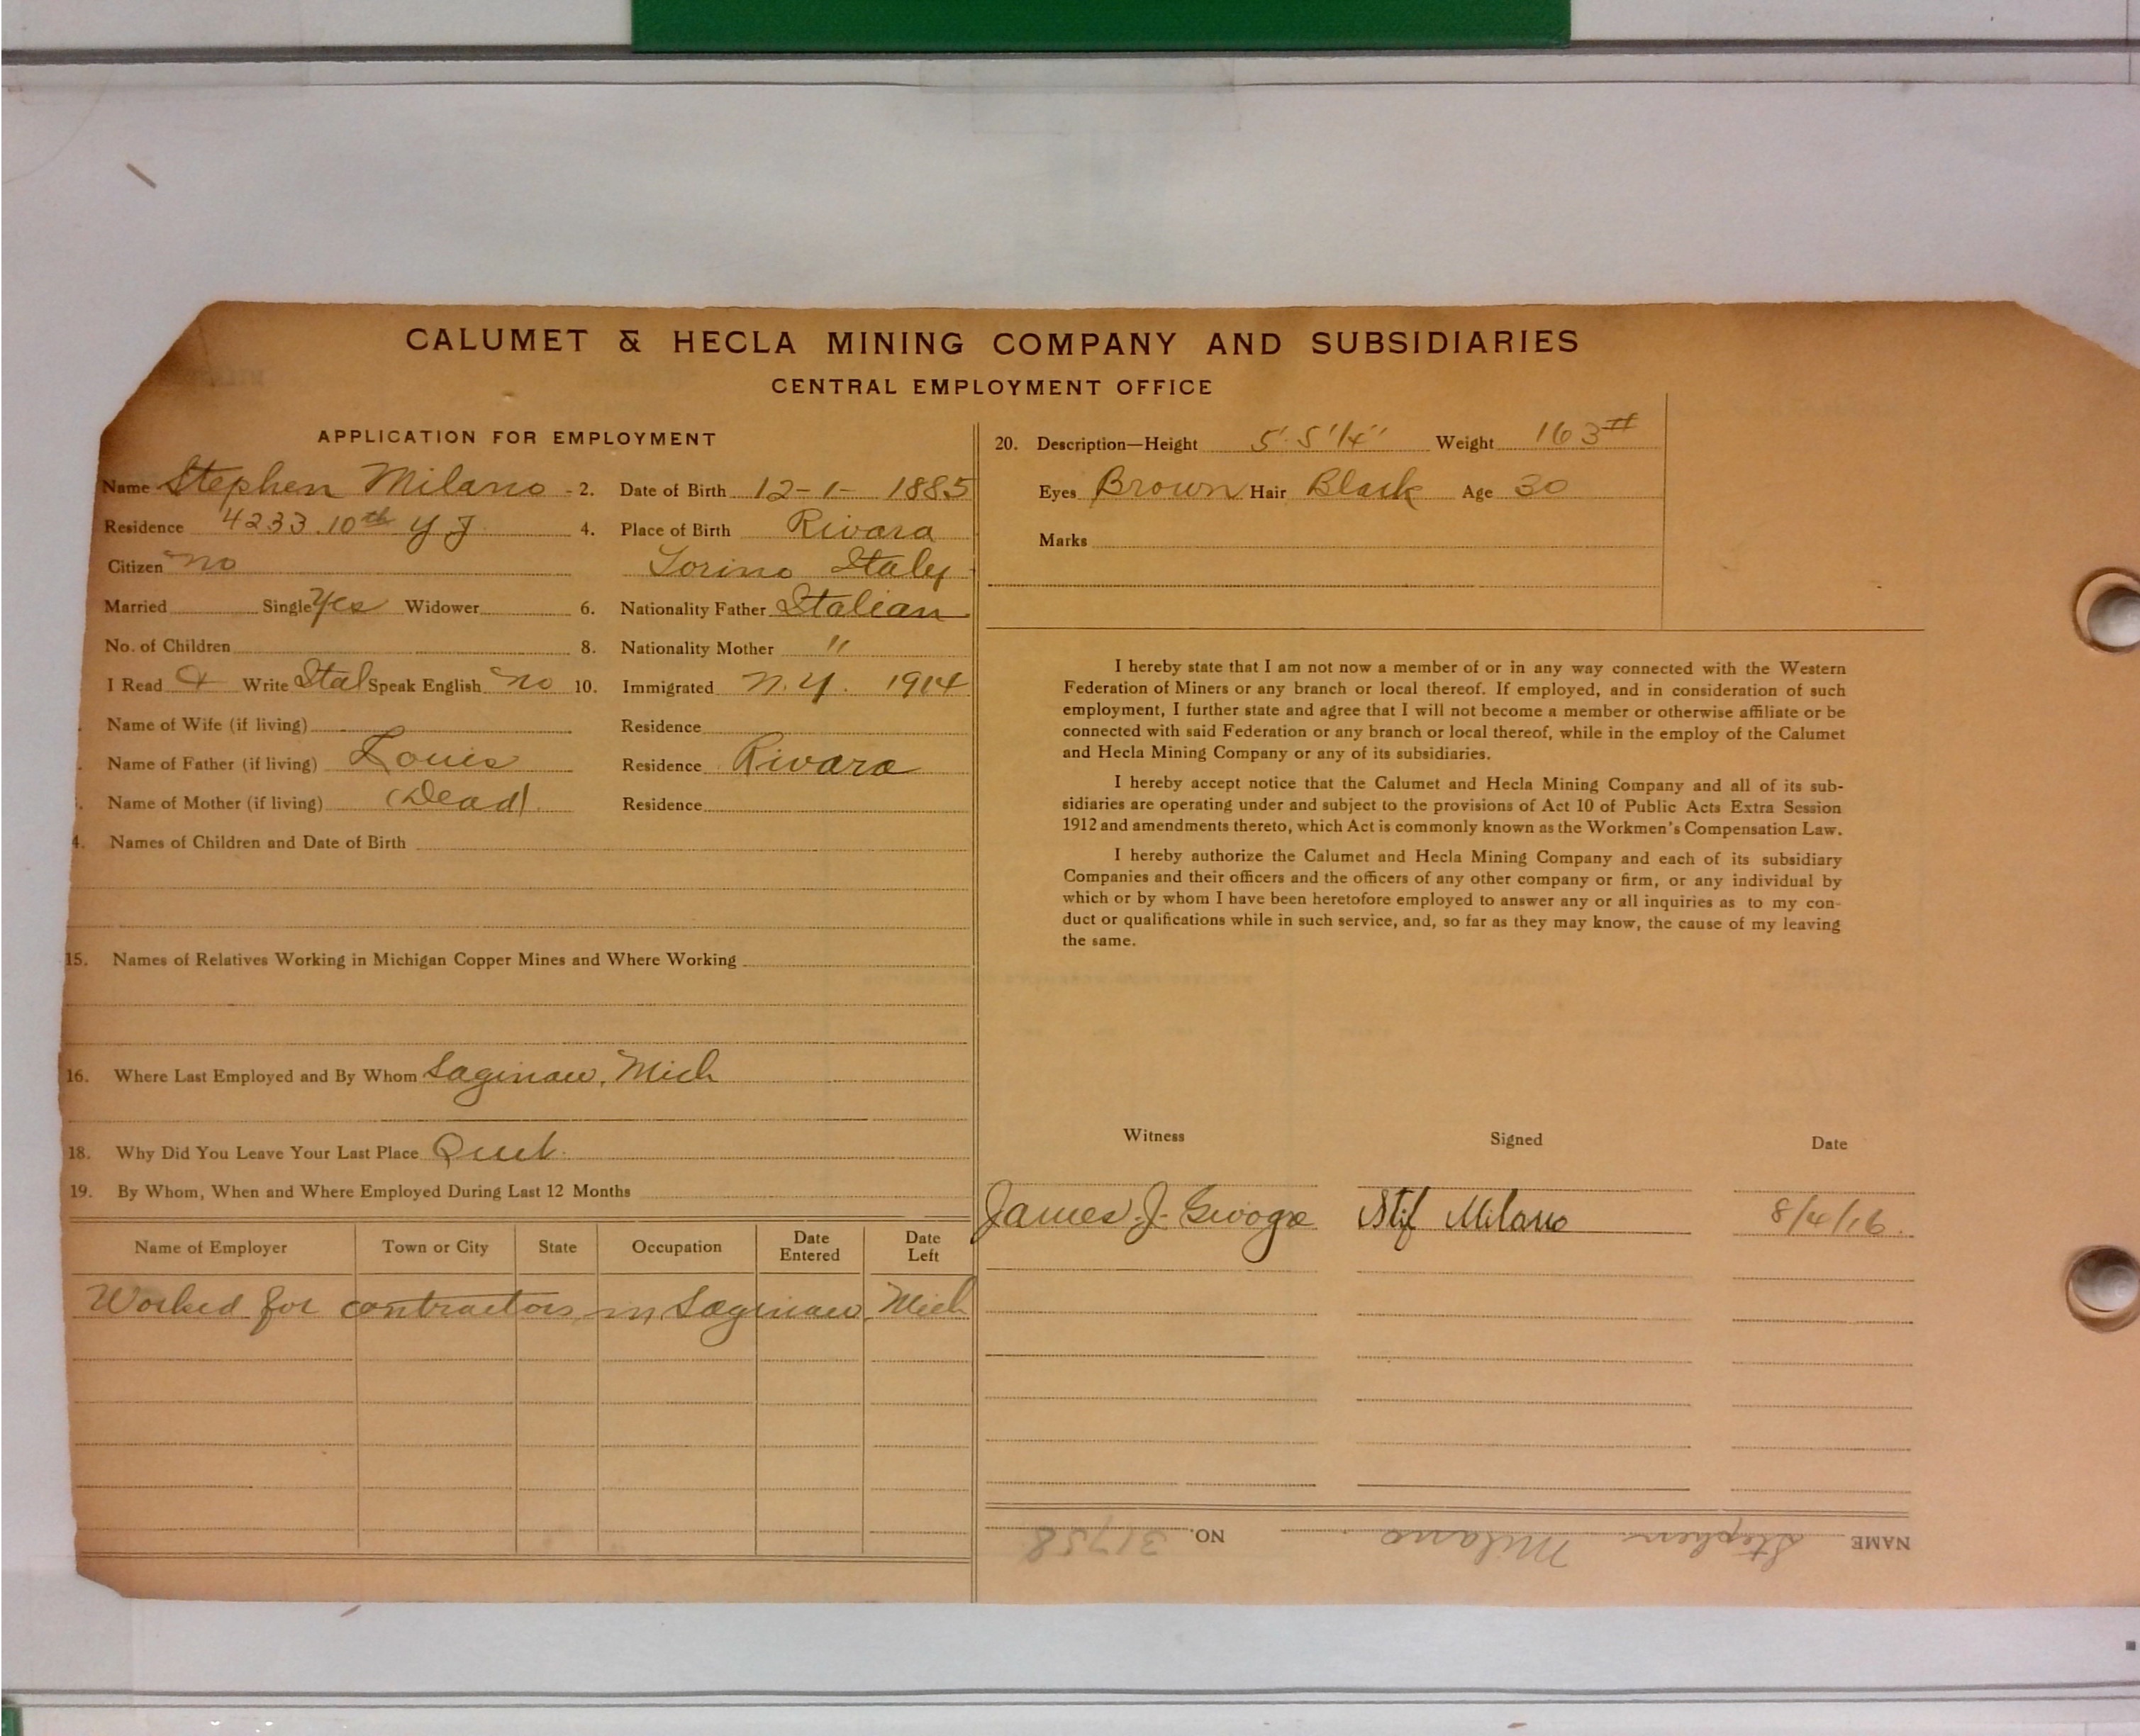 CALUMET & HECLA MINING COMPANY AND SUBSIDIARIES
CENTRAL EMPLOYMENT OFFICE
APPLICATION FOR EMPLOYMENT
Name Stephen Milano 2. Date of Birth 12-1-1885
Residence 4233 10th Y J 4. Place of Birth Rivara
Citizen no Torino Italy
Married Single Yes Widower 6. Nationality Father Italian
No. of Children 8. Nationality Mother "
I Read & Write Ital Speak English no 10. Immigrated N.Y. 1914
Name of Wife (if living) Residence
Name of Father (if living) Louis Residence Rivara
Name of Mother (if living) (Dead) Residence
4. Names of Children and Date of Birth
15. Names of Relatives Working in Michigan Copper Mines and Where Working
16. Where Last Employed and By Whom Saginaw, Mich
18. Why Did You Leave Your Last Place Quit.
19. By Whom, When and Where Employed During Last 12 Months
Name of Employer Town or City State Occupation Date Entered Date Left
Worked for contractors in Saginaw, Mich
20. Description—Height 5' 5 1/4" Weight 163#
Eyes Brown Hair Black Age 30
Marks
I hereby state that I am not now a member of or in any way connected with the Western
Federation of Miners or any branch or local thereof. If employed, and in consideration of such
employment, I further state and agree that I will not become a member or otherwise affiliate or be
connected with said Federation or any branch or local thereof, while in the employ of the Calumet
and Hecla Mining Company or any of its subsidiaries.
I hereby accept notice that the Calumet and Hecla Mining Company and all of its sub-
sidiaries are operating under and subject to the provisions of Act 10 of Public Acts Extra Session
1912 and amendments thereto, which Act is commonly known as the Workmen's Compensation Law.
I hereby authorize the Calumet and Hecla Mining Company and each of its subsidiary
Companies and their officers and the officers of any other company or firm, or any individual by
which or by whom I have been heretofore employed to answer any or all inquiries as to my con-
duct or qualifications while in such service, and, so far as they may know, the cause of my leaving
the same.
Witness Signed Date
James J. Stif Milano 8/4/16
NAME Stephen Milano NO. 31758